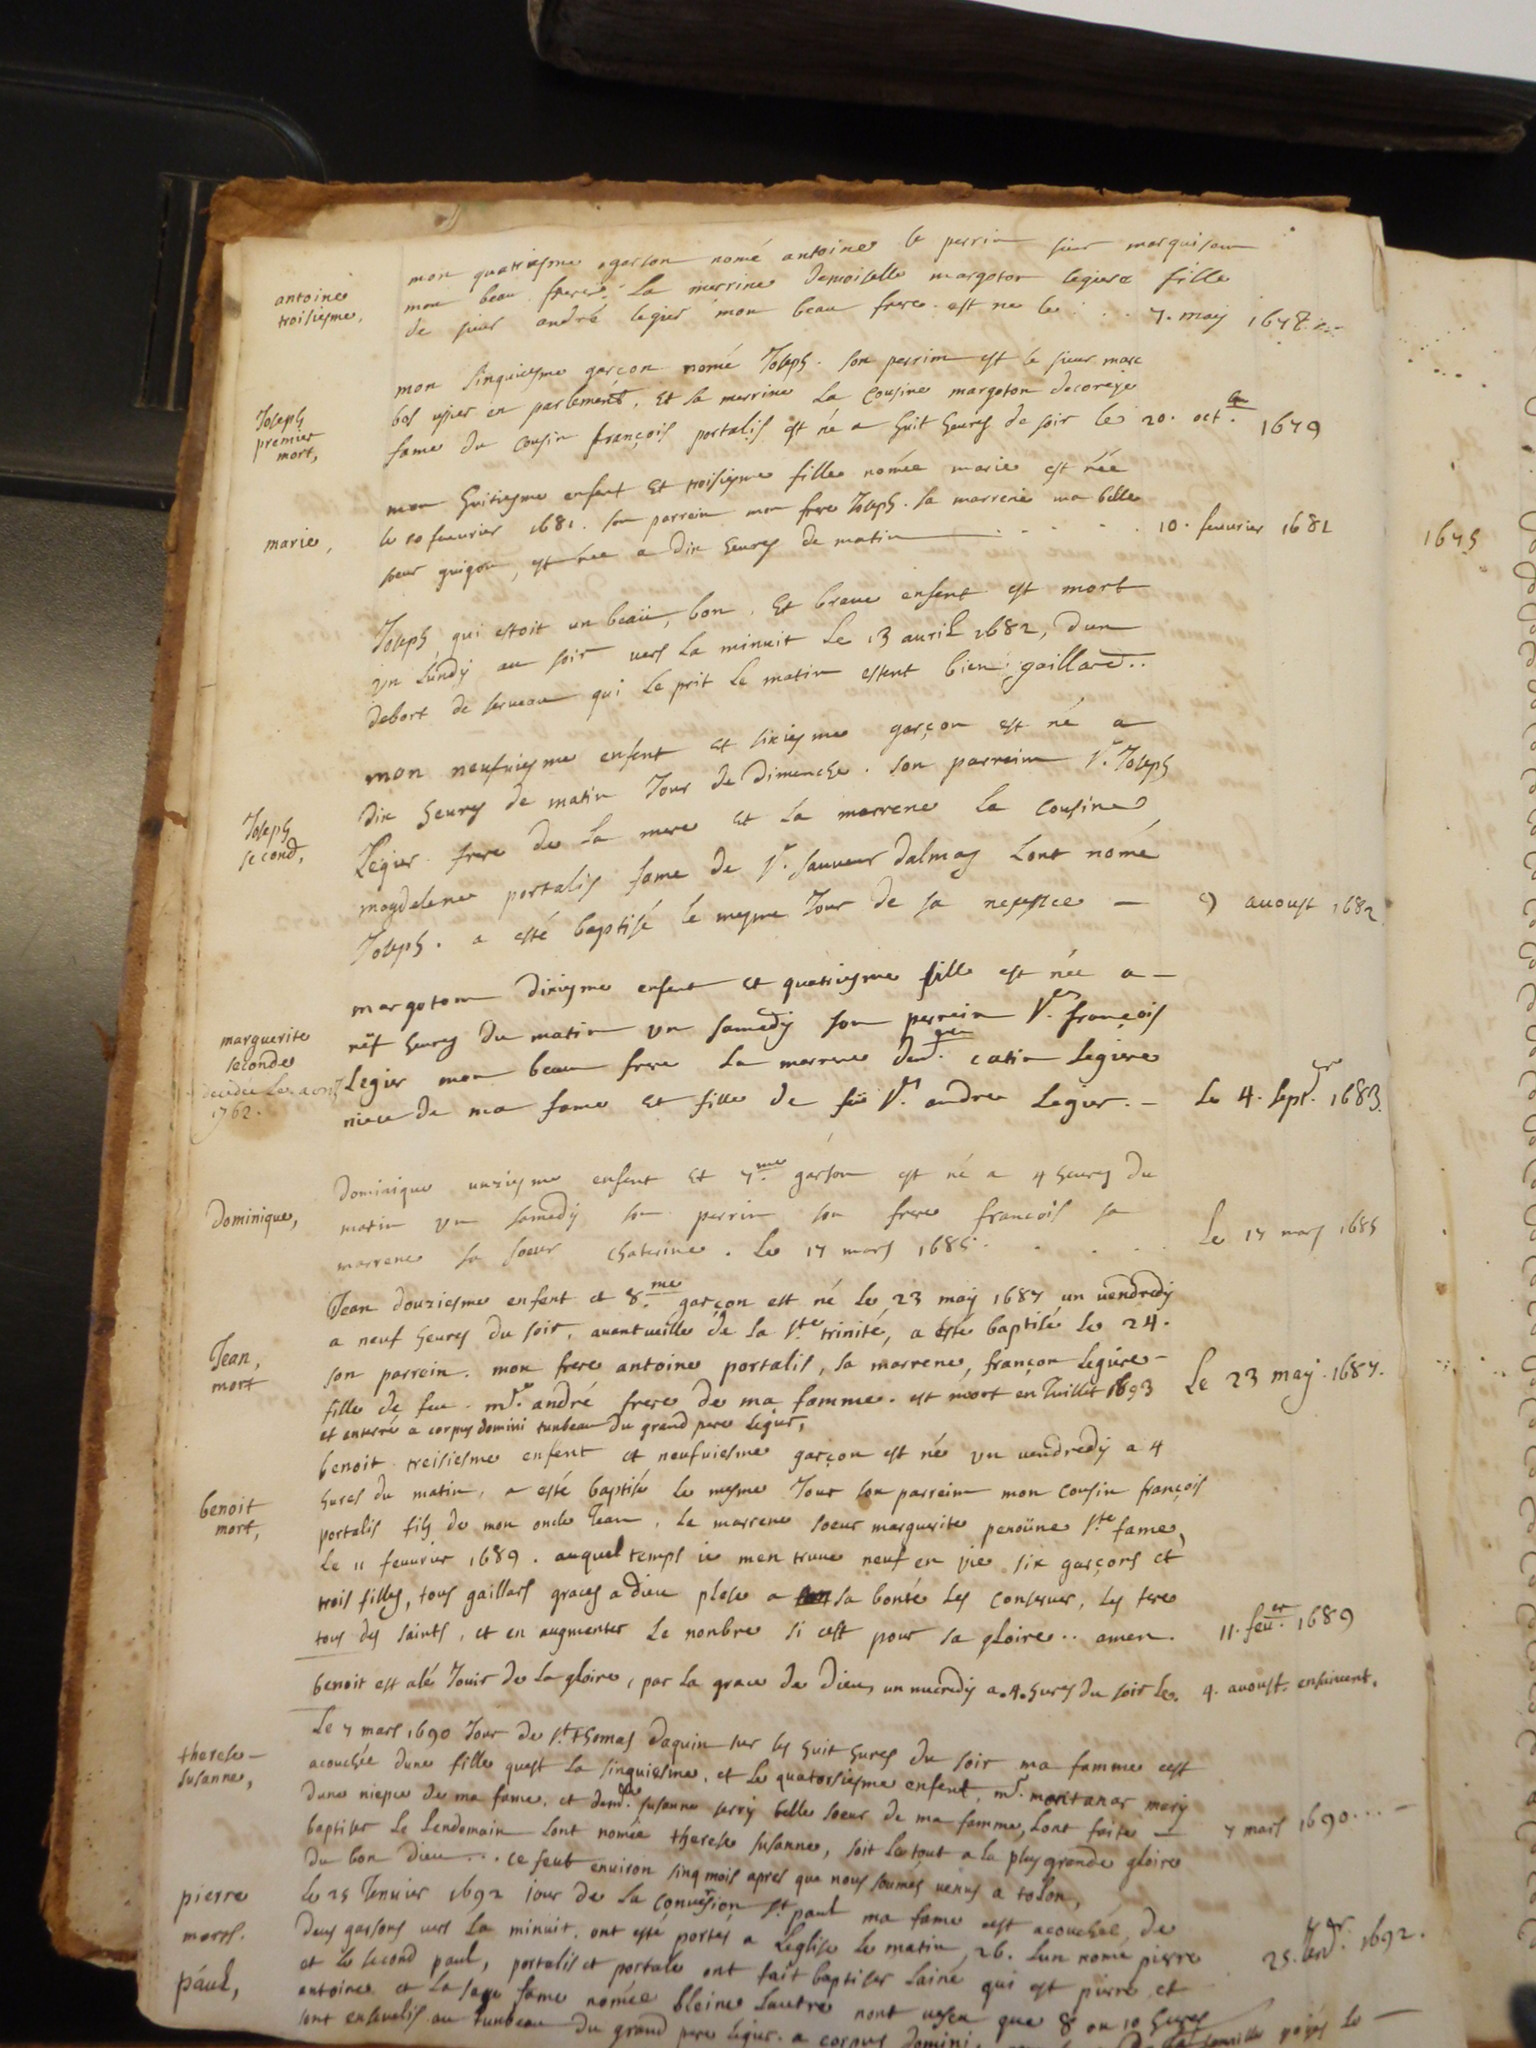 antoine
troisiesme,
mon quatriesme garson nomé antoine le perrin sieur marquisan
mon beau frere. La merrine demoiselle margoton legiere fille
de sieur andré legier mon beau frere est ne le . . . 7. may 167
Joseph
premier
mort,
mon sinquiesme garçon nomé Joseph. son perrim est le sieur marc
bos usier en parlement, Et sa merrine La Cousine margoton decoreje
fame du Cousin françois portalis est né a huit heures de soir le 20. oct. 1679
marie,
mon huitiesme enfent Et troisiesme fille nomée marie est née
le 10 feuurier 1681. son parrein mon frere Joseph. sa marrene ma belle
soeur guigou, est née a dix heures de matin . . . . . 10. feuurier 1681
1675
Joseph qui estoit un beau, bon, Et braue enfent est mort
Un Lundy au soir vers La minuit Le 13 auril 1682, dun
debort de serueau qui Le prit Le matin estent bien gaillard..
Joseph
second,
mon neufuiesme enfent et sixiesme garçon est né a
dix heures de matin Jour de Dimenche. son parreim sr. Joseph
Legier frere de La mere et La marrene La Cousine
magdelene portalis fame de sr. sauueur dalmas Lont nomé
Joseph. a esté baptisé le mesme Jour de sa — 9 auoust 1682
marguerite
seconde
1762.
margoton dixiesme enfent et quatriesme fille est née a —
nëf heures du matin un samedy son perrein sr. françois
Legier mon beau frere La marrene dem. catin Legiere
niece de ma fame Et fille de feü sr. andre Legier. — Le 4. sept. 1683.
Dominique,
Dominique unziesme enfent Et 7.me garson est né a 4 heures du
matin un samedy son perrin son frere francois sa
marrene sa soeur Chaterine. Le 17 mars 1685. . . . Le 17 mars 1685
Jean,
mort
Jean douziesme enfent et 8.me garçon est né Le 23 may 1687 un vendredy
a neuf heures du soir, auentueille de La ste trinité, a esté baptisé Le 24.
son parrein. mon frere antoine portalis, sa marrene, françon Legiere —
fille de feu mr. andré frere de ma famme. est mort en Juillet 1693 Le 23 may. 1687.
et enterré a corpus domini tunbeau du grand pere Legier,
benoit
mort,
benoit treisiesme enfent et neufuiesme garçon est né un vendredy a 4
hures du matin, a esté baptisé Le mesme Jour son parreim mon Cousin françois
portalis fils de mon oncle Jean. La marrene soeur marguerite penoüne ste fame,
Le 11 feuurier 1689. auquel temps ie men truue neuf en vie six garçons et
trois filles, tous gaillars graces a Dieu plese a sa bonté Les Conseruer, Les fere
tous des saints, et en augmenter Le nonbre si cest pour sa gloire.. amen. 11. feu.er 1689
benoit est alé Jouir de La gloire, par La grace de Dieu, un mecredy a.4. hures du soir Le. 4. auoust. ensuiuent.
therese —
susanne,
Le 7 mars 1690 Jour de st thomas daquin sur les huit hures du soir ma famme cest
acouchée dune fille quest La sinquiesme, et Le quatorsiesme enfent, mr. montanar mary
dune niepce de ma fame. et demlle. susanne serry belle soeur de ma famme, Lont faite —
baptiser Le Lendemain Lont nomée therese susanne, soit Le tout a La plus grande gloire 7 mars 1690....—
du bon Dieu ... ce feut environ sinq mois apres que nous soumes venus a tolon,
pierre
morts.
paul,
Le 25 Jenuier 1692 iour de La conuersion st paul ma fame cest acouchée de
deus garsons vers La minuit. ont esté portés a Leglise Le matin, 26. Lun nomé pierre
et Le second paul, portalis et portale ont fait baptiser Lainé qui est pierre et 25. 1692.
antoine et La sage fame nomée bleine Lautre nont vescu que 8 ou 10 hures
sont enseuelis au tunbeau du grand pere Legier. a corpus domini,